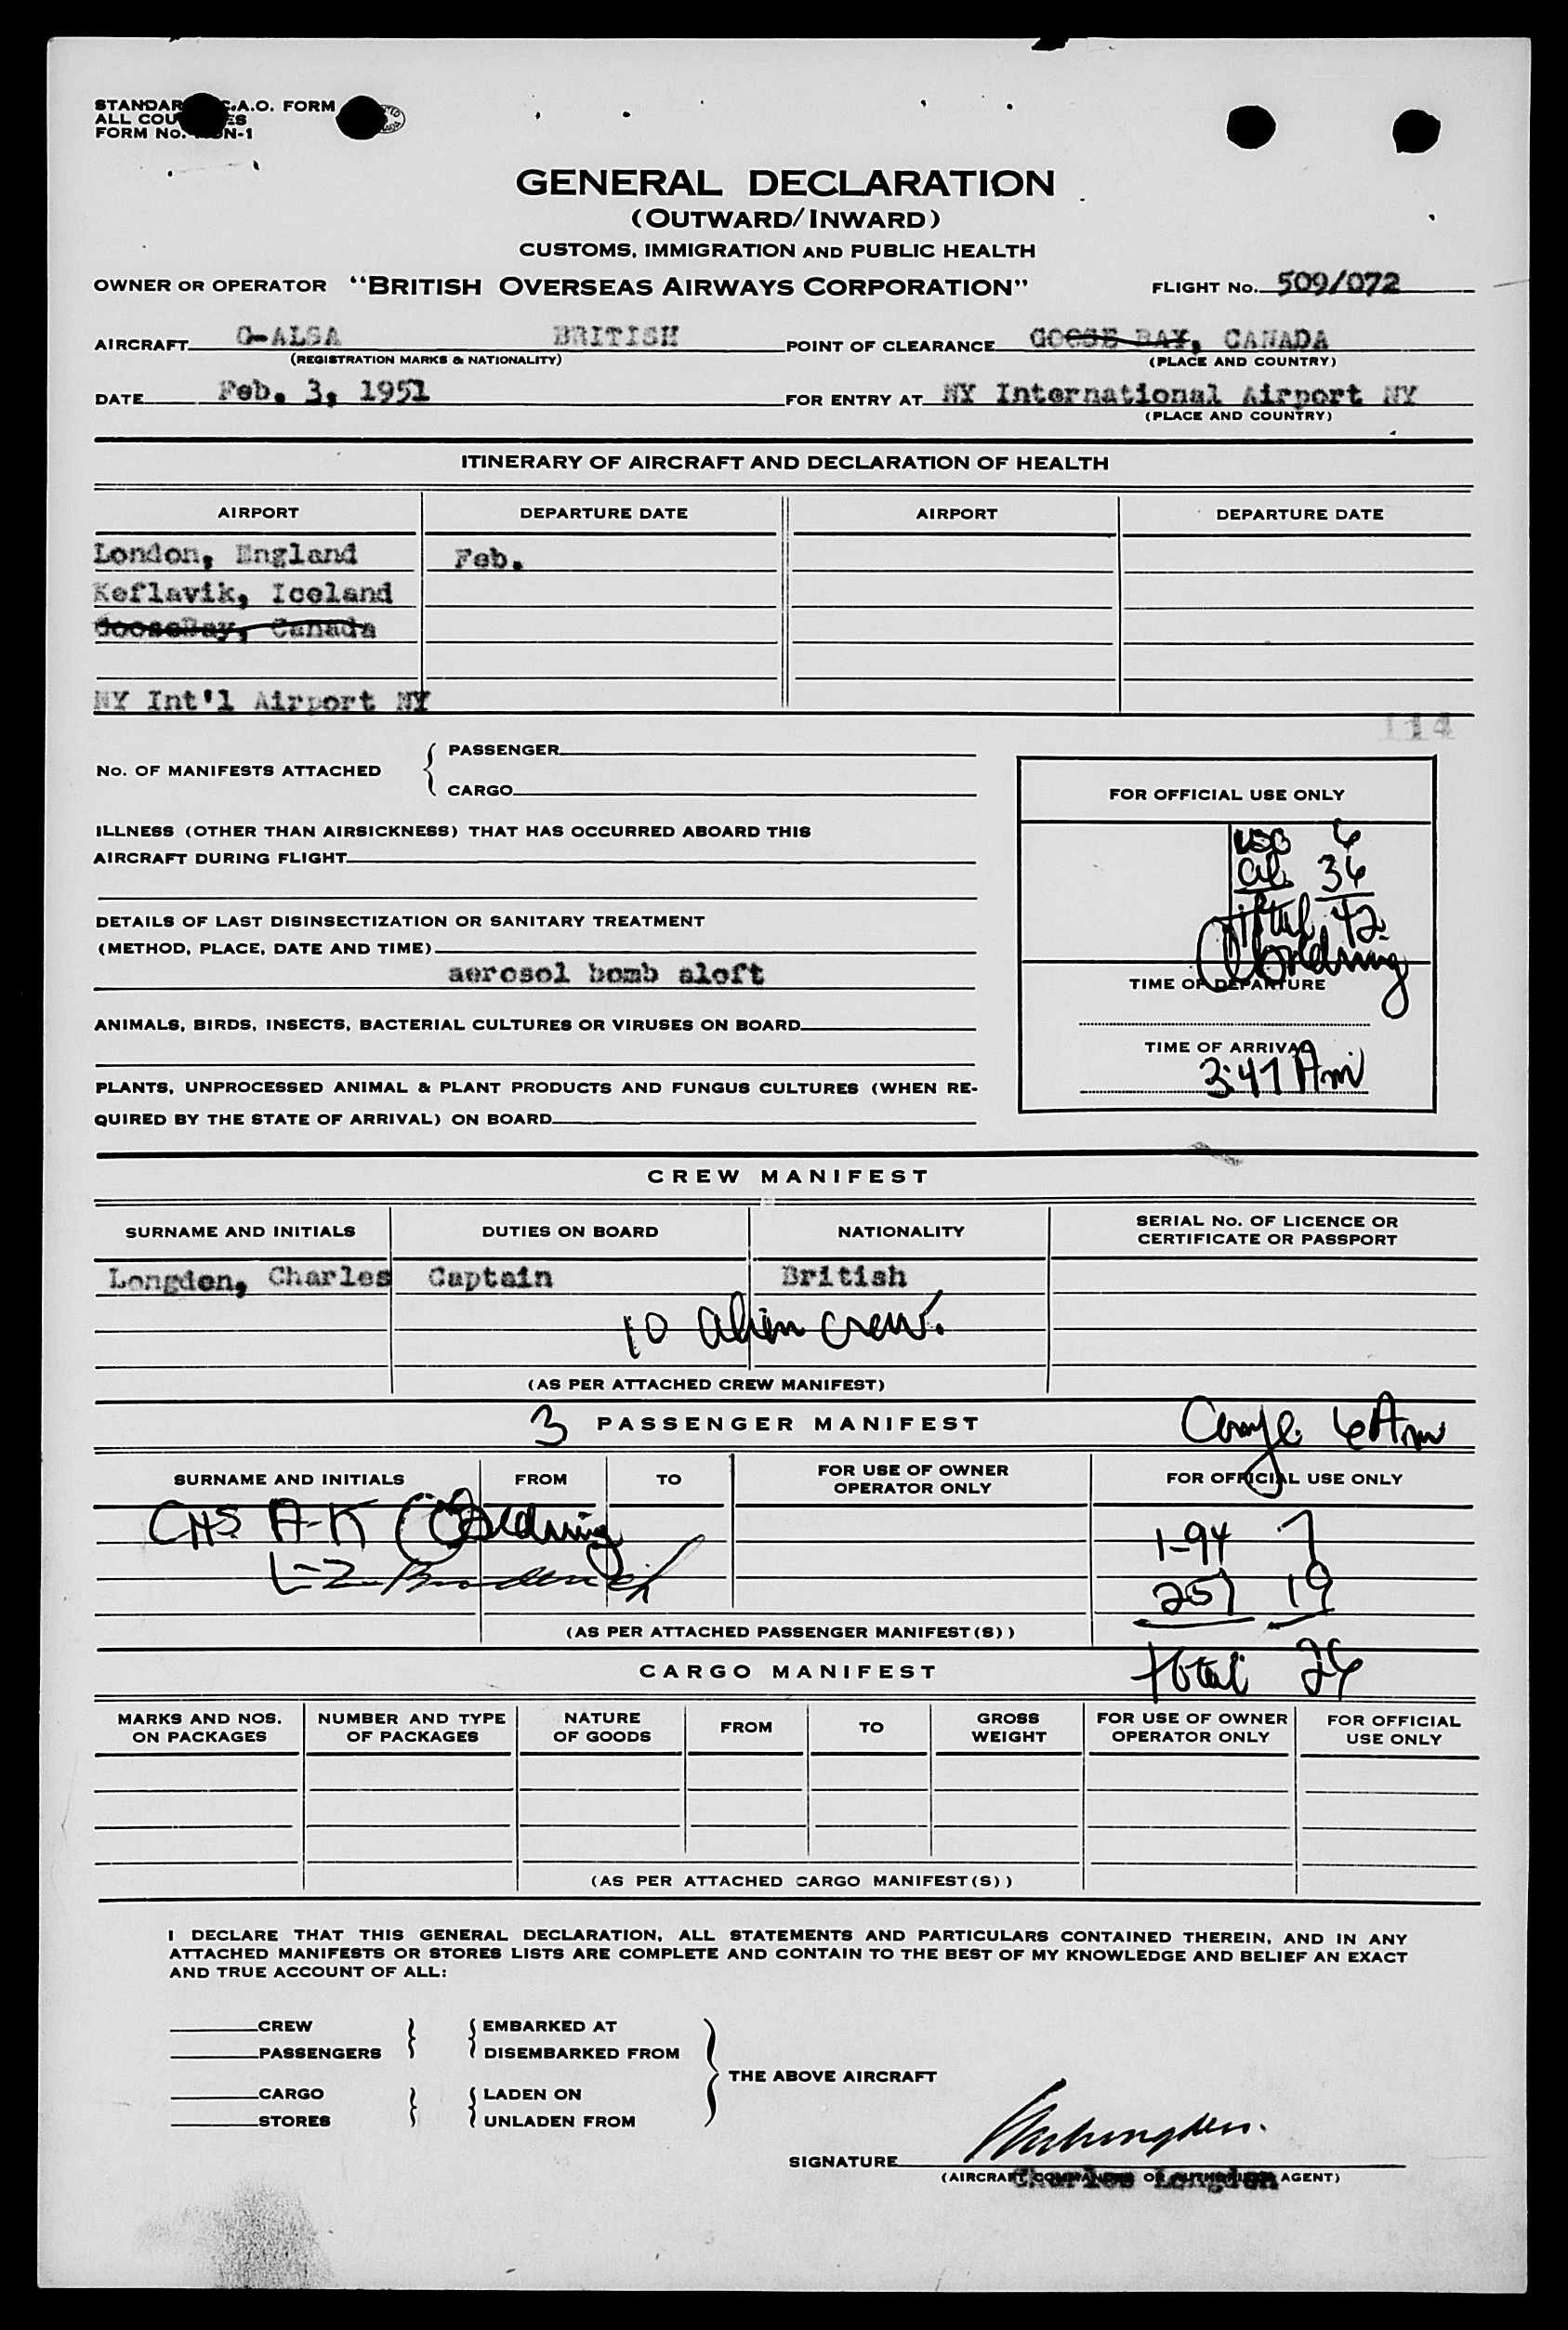 STANDAR .A.O. FORM
ALL COU ES
FORM No. N-1
GENERAL DECLARATION
(OUTWARD/INWARD)
CUSTOMS, IMMIGRATION AND PUBLIC HEALTH
OWNER OR OPERATOR "BRITISH OVERSEAS AIRWAYS CORPORATION" FLIGHT No. 509/072
AIRCRAFT G-ALSA BRITISH POINT OF CLEARANCE GOOSE BAY, CANADA
(REGISTRATION MARKS & NATIONALITY) (PLACE AND COUNTRY)
DATE Feb. 3, 1951 FOR ENTRY AT NY International Airport NY
(PLACE AND COUNTRY)
ITINERARY OF AIRCRAFT AND DECLARATION OF HEALTH
AIRPORT DEPARTURE DATE AIRPORT DEPARTURE DATE
London, England Feb.
Keflavik, Iceland
GooseBay, Canada
NY Int'l Airport NY
114
No. OF MANIFESTS ATTACHED { PASSENGER
CARGO
FOR OFFICIAL USE ONLY
ILLNESS (OTHER THAN AIRSICKNESS) THAT HAS OCCURRED ABOARD THIS
AIRCRAFT DURING FLIGHT
USC 6
al. 36
total 42
DETAILS OF LAST DISINSECTIZATION OR SANITARY TREATMENT
(METHOD, PLACE, DATE AND TIME)
aerosol bomb aloft
TIME OF DEPARTURE
ANIMALS, BIRDS, INSECTS, BACTERIAL CULTURES OR VIRUSES ON BOARD
TIME OF ARRIVAL
3:47 Am
PLANTS, UNPROCESSED ANIMAL & PLANT PRODUCTS AND FUNGUS CULTURES (WHEN RE-
QUIRED BY THE STATE OF ARRIVAL) ON BOARD
CREW MANIFEST
SURNAME AND INITIALS DUTIES ON BOARD NATIONALITY SERIAL No. OF LICENCE OR
CERTIFICATE OR PASSPORT
Longden, Charles Captain British
10 alien crew.
(AS PER ATTACHED CREW MANIFEST)
3 PASSENGER MANIFEST 6 Am
SURNAME AND INITIALS FROM TO FOR USE OF OWNER
OPERATOR ONLY FOR OFFICIAL USE ONLY
CHS A-K
L-Z
1-94 7
257 19
(AS PER ATTACHED PASSENGER MANIFEST(S))
total 26
CARGO MANIFEST
MARKS AND NOS.
ON PACKAGES NUMBER AND TYPE
OF PACKAGES NATURE
OF GOODS FROM TO GROSS
WEIGHT FOR USE OF OWNER
OPERATOR ONLY FOR OFFICIAL
USE ONLY
(AS PER ATTACHED CARGO MANIFEST(S))
I DECLARE THAT THIS GENERAL DECLARATION, ALL STATEMENTS AND PARTICULARS CONTAINED THEREIN, AND IN ANY
ATTACHED MANIFESTS OR STORES LISTS ARE COMPLETE AND CONTAIN TO THE BEST OF MY KNOWLEDGE AND BELIEF AN EXACT
AND TRUE ACCOUNT OF ALL:
CREW EMBARKED AT
PASSENGERS DISEMBARKED FROM
THE ABOVE AIRCRAFT
CARGO LADEN ON
STORES UNLADEN FROM
SIGNATURE
(AIRCRAFT COMMANDER OR AUTHORIZED AGENT)
Charles Longden